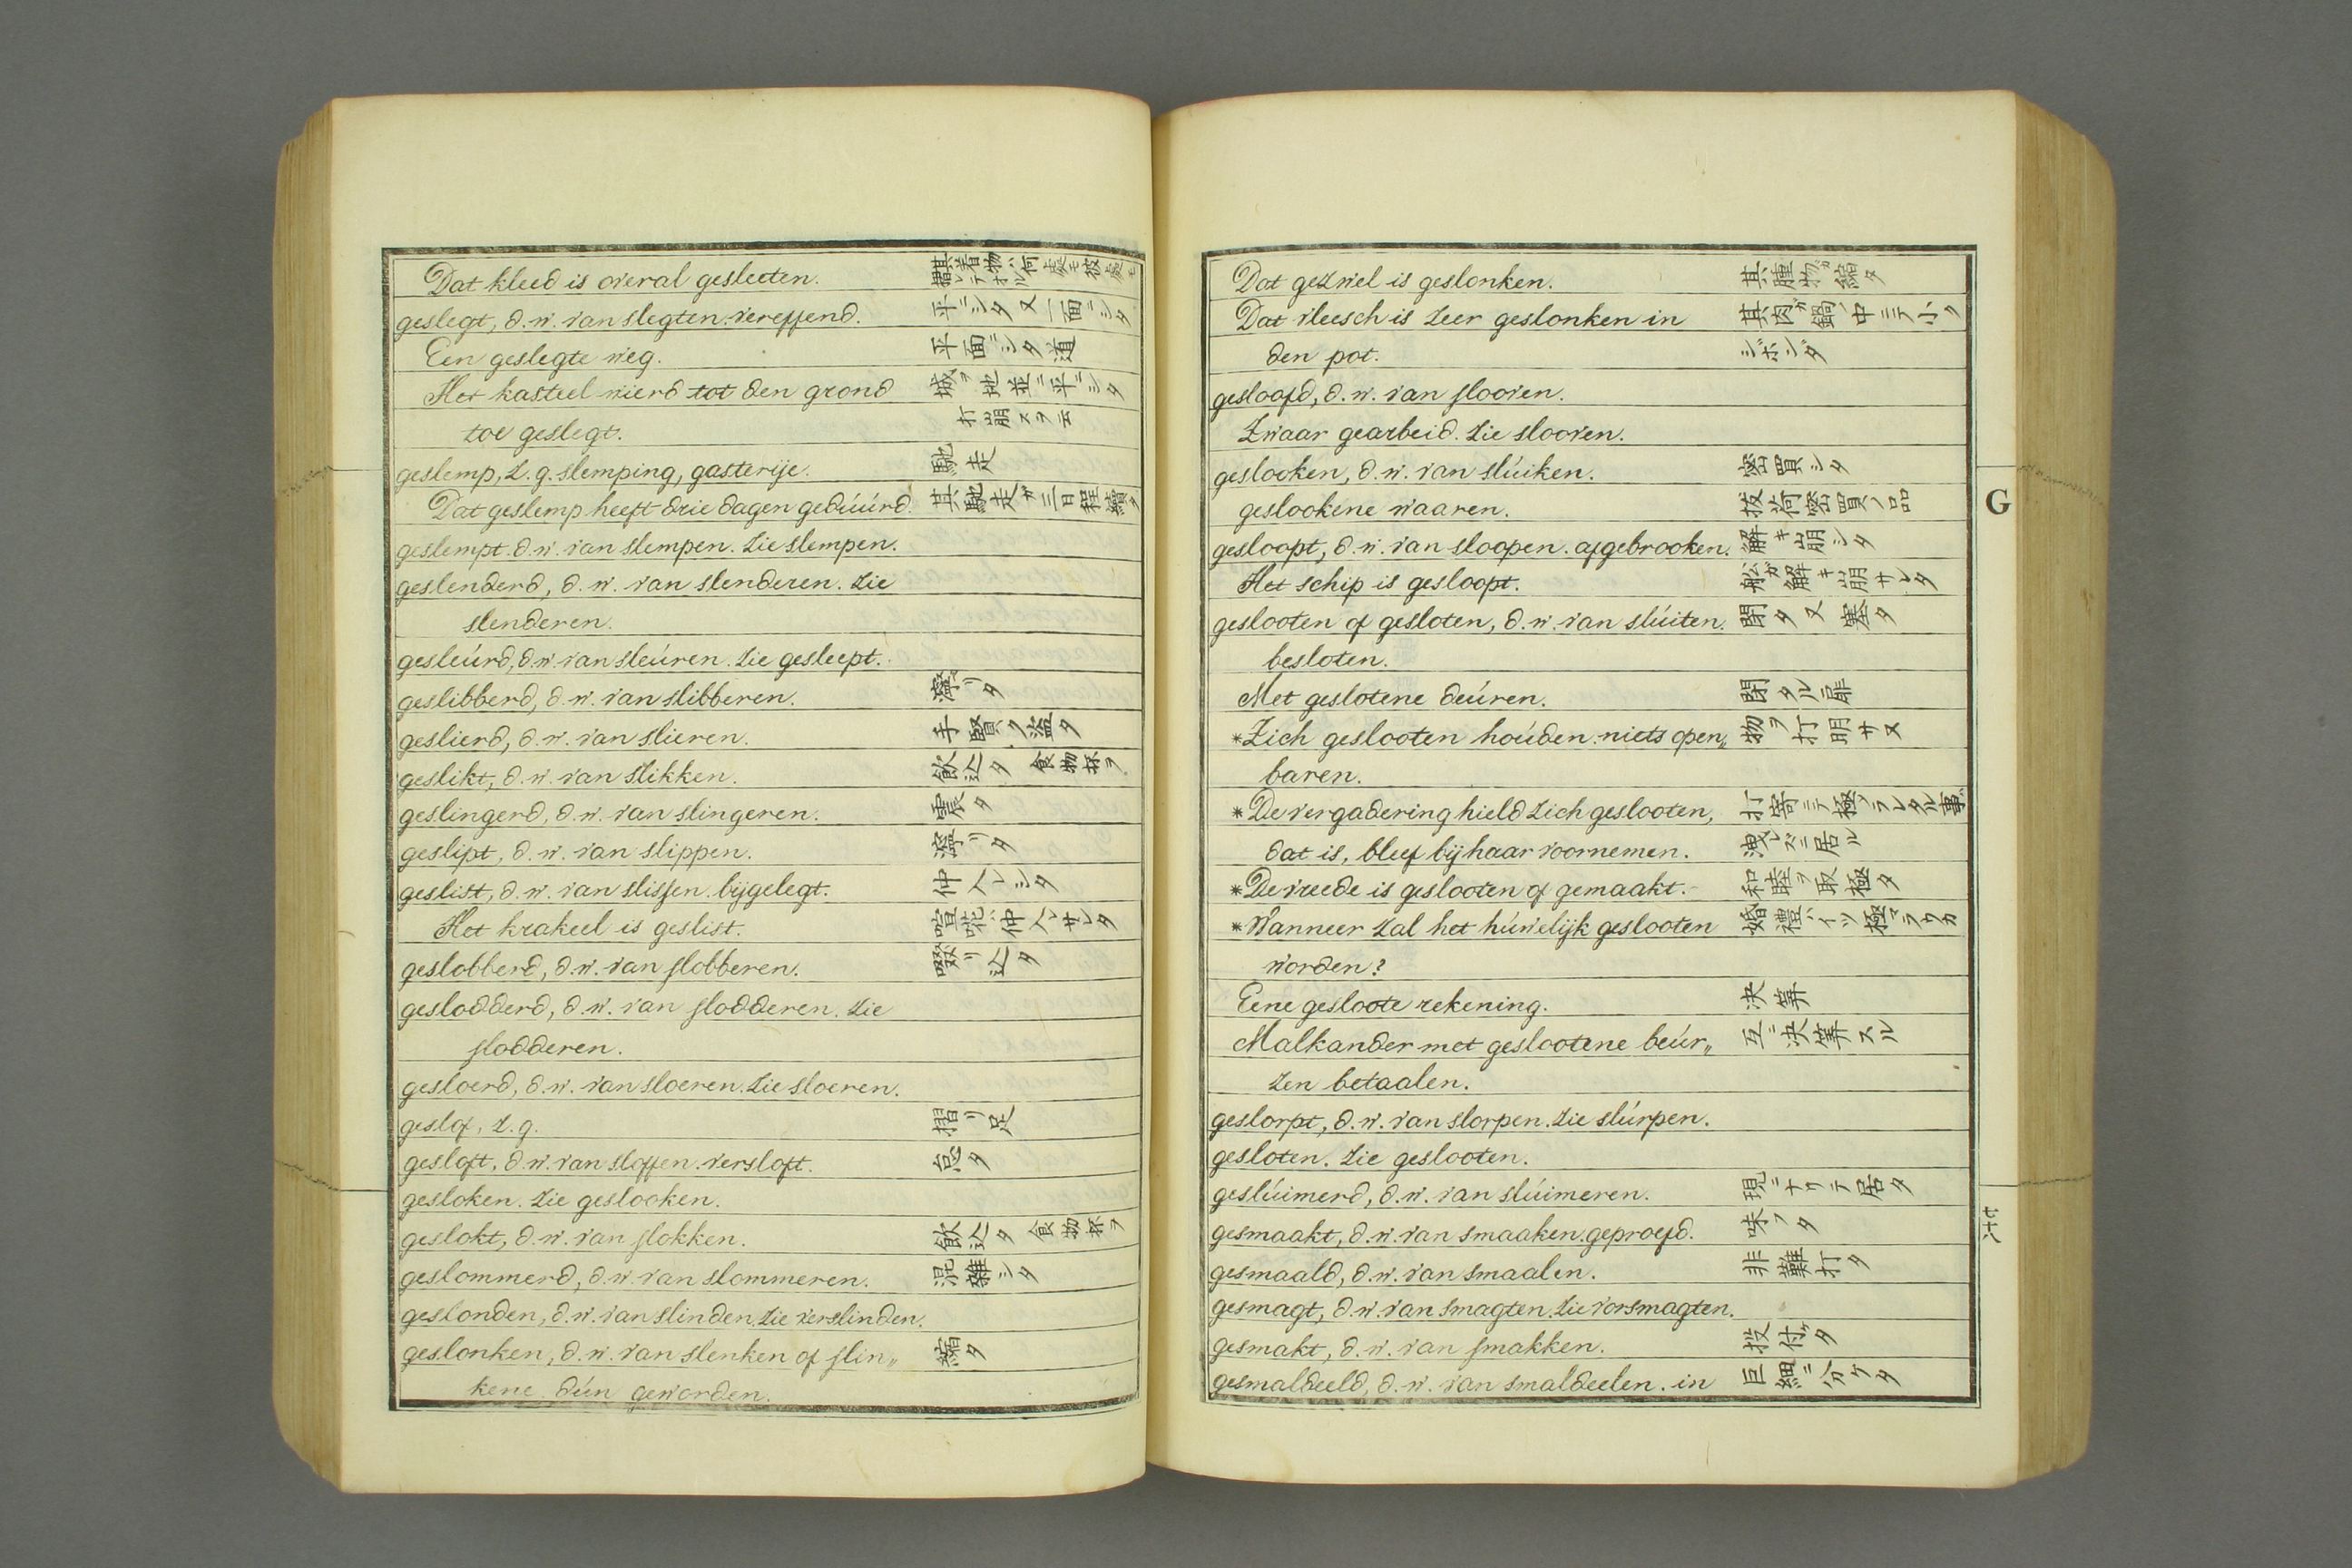 Dat kleed is overal gesleeten. 其着物ハ何處モ彼處モ
geslegt, d.w. van slegten. vereffend. 平ニシタ又一面ニシタ
Een geslegte weg. 平面ニシタ道
Het kasteel wierd tot den grond 城ヲ地並ニ平ニシタ
toe geslegt. 打崩スヲ云
geslemp, z.g. slemping, gasterije. 馳走
Dat geslemp heeft drie dagen gedúúrd. 其馳走ガ三日程續タ
geslempt. d.w. van slempen. zie slempen.
geslenderd, d.w. van slenderen. zie
slenderen.
gesleúrd, d.w. van sleúren. zie gesleept.
geslibberd, d.w. van slibberen. リタ
geslierd, d.w. van slieren. 手賢ク盗タ
geslikt, d.w. van slikken. 飲込タ 食物杯ヲ
geslingerd, d.w. van slingeren. 震タ
geslipt, d.w. van slippen. リタ
geslist, d.w. van slissen. bijgelegt. 仲人シタ
Het krakeel is geslist. 喧嘩仲人サレタ
geslobberd, d.w. van slobberen. 啜リ込タ
geslodderd, d.w. van slodderen. zie
slodderen.
gesloerd, d.w. van sloeren. zie sloeren.
geslof, z.g. 摺リ足
gesloft, d.w. van sloffen. versloft. 怠タ
gesloken. zie geslooken.
geslokt, d.w. van slokken. 飲込タ 食物杯ヲ
geslommerd, d.w. van slommeren. 混雜シタ
geslonden, d.w. van slinden. zie verslinden.
geslonken, d.w. van slenken of slin„ 縮タ
kene. dún geworden.
Dat gezwel is geslonken. 其腫物ガ縮タ
Dat vleesch is zeer geslonken in 其肉ガ鍋ノ中ニテ小ク
den pot. シボンダ
gesloofd, d.w. van slooven.
Zwaar gearbeid. zie slooven.
geslooken, d.w. van slúiken. 密買シタ
geslookene waaren. 拔荷密買ノ品
gesloopt, d.w. van sloopen. afgebrooken. 解キ崩シタ
Het schip is gesloopt. 舩ガ解キ崩サレタ
geslooten of gesloten, d.w. van slúiten. 閉タ又塞タ
besloten.
Met geslotene deúren. 閉タル扉
*Zich geslooten hoúden. niets open„ 物ヲ打明サヌ
baren.
*De vergadering hield zich geslooten, 打寄ニテ極ラレタル事ガ
dat is, bleef bij haar voornemen. 洩レズニ居ル
*De vreede is geslooten of gemaakt. 和睦ヲ取極タ
*Wanneer zal het húwelijk geslooten 婚禮ハイツ極マラウカ
worden?
Eene gesloote rekening. 決筭
Malkander met geslootene beúr„ 互ニ決筭スル
zen betaalen.
geslorpt, d.w. van slorpen. zie slúrpen.
gesloten. zie geslooten.
geslúimerd, d.w. van slúimeren. 現ニナリテ居タ
gesmaakt, d.w. van smaaken. geproefd. 味フタ
gesmaald, d.w. van smaalen. 非難打タ
gesmagt, d.w. van smagten. zie versmagten.
gesmakt, d.w. van smakken. 投付ケタ
gesmaldeeld, d.w. van smaldeelen. in 巨細ニ分ケタ
G